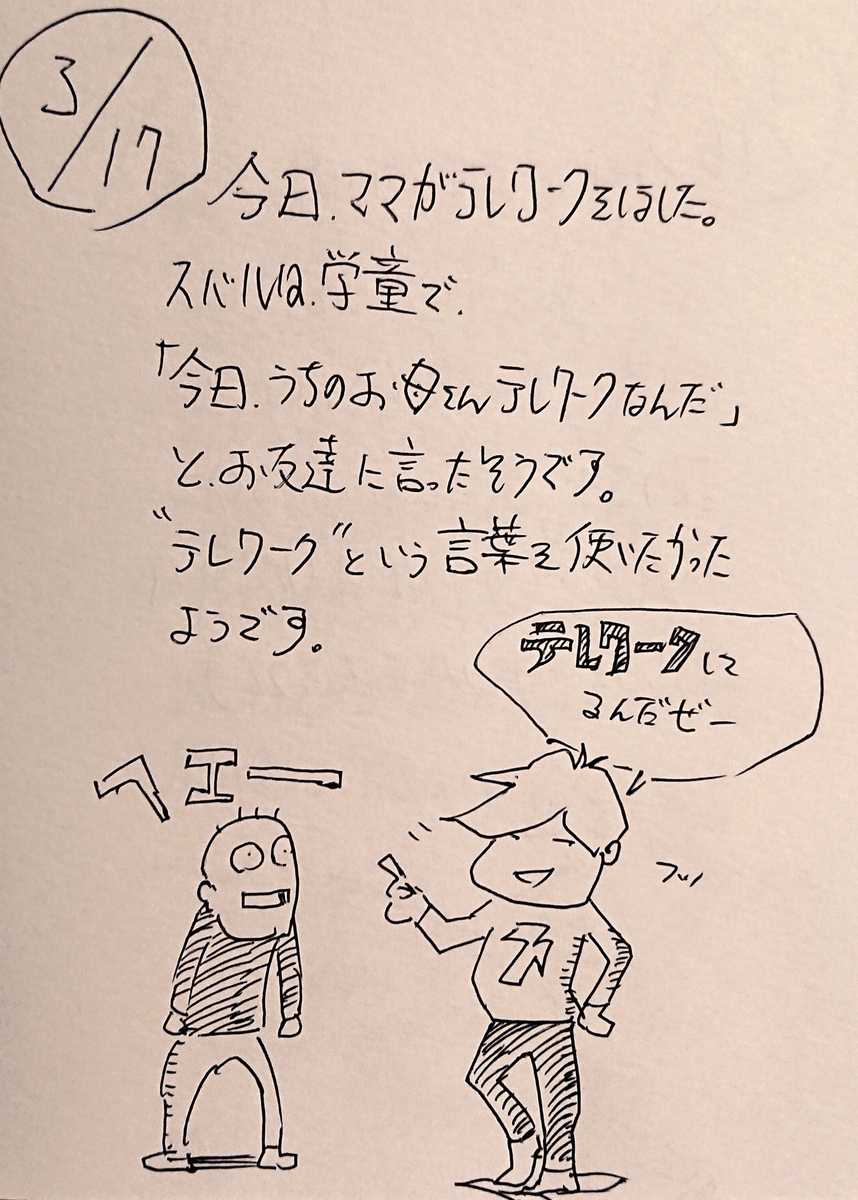 3/17
今日、ママがテレワークをしました。
スバルは、学童で、
「今日、うちのお母さんテレワークなんだ」
と、お友達に言ったそうです。
“テレワーク”という言葉を使いたかった
ようです。
テレワークして
るんだぜー
ヘエー
フッ
ス